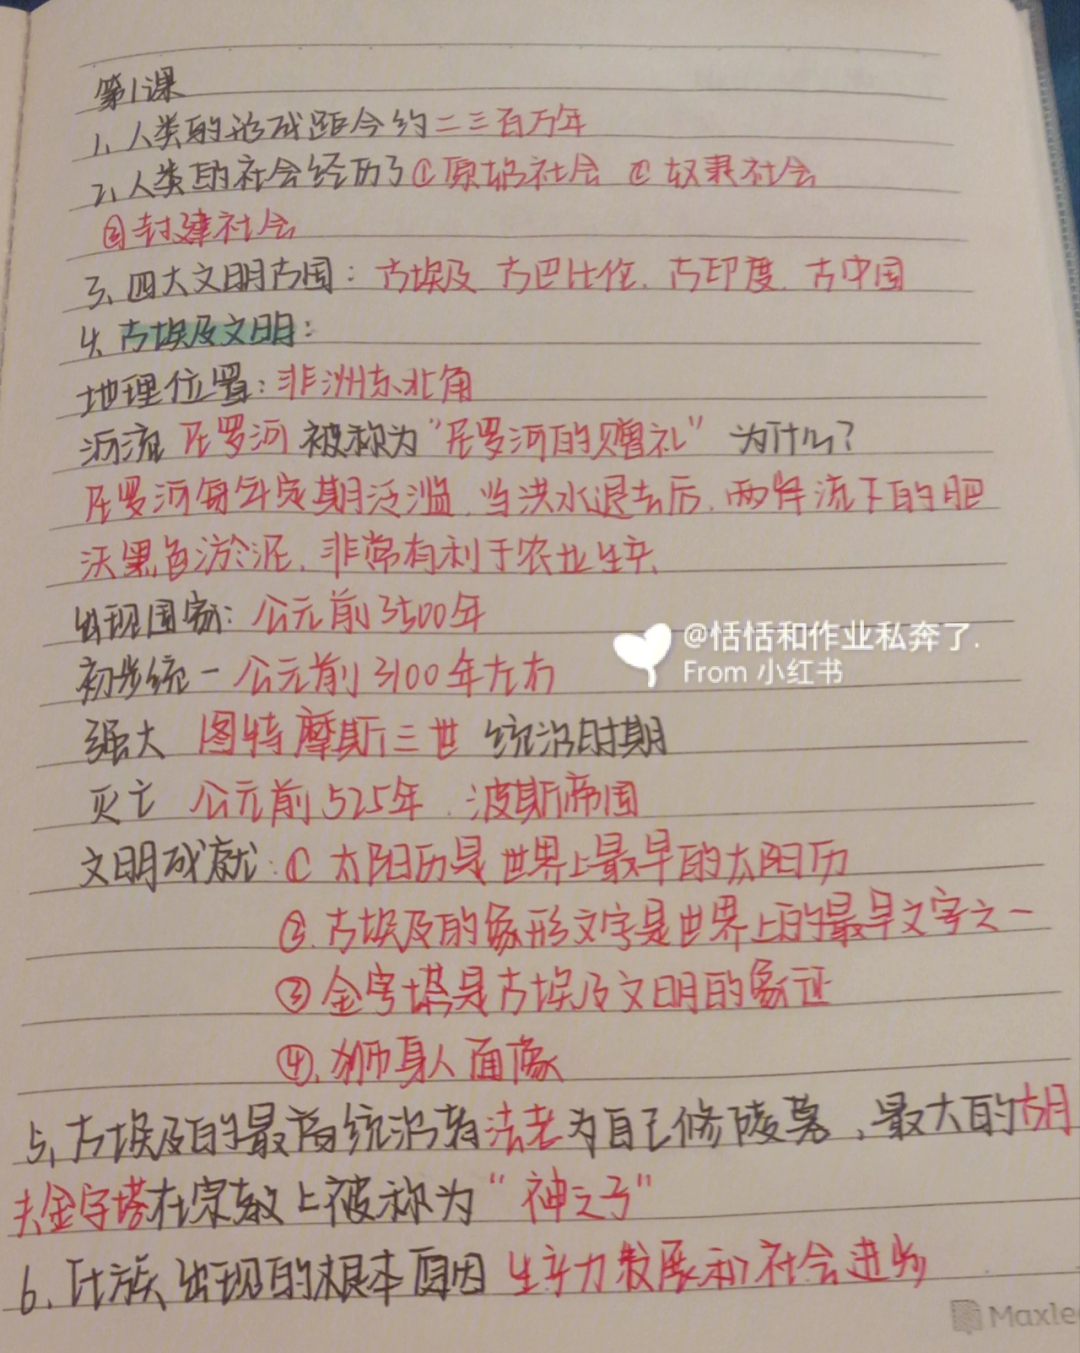 第1课
1、人类的形成距今约二三百万年
2、人类的社会经历了①原始社会 ②奴隶社会
③封建社会
3、四大文明古国：古埃及 古巴比伦、古印度、古中国
4、古埃及文明：
地理位置：非洲东北角
河流 尼罗河 被称为“尼罗河的赠礼” 为什么？
尼罗河每年定期泛滥、当洪水退去后、两岸流下的肥
沃黑色淤泥、非常有利于农业生产、
出现国家：公元前3500年
初步统一 公元前3100年左右
强大 图特摩斯三世 统治时期
灭亡 公元前525年、波斯帝国
文明成就：① 太阳历是世界上最早的太阳历
②、古埃及的象形文字是世界上的最早文字之一
③ 金字塔是古埃及文明的象征
④、狮身人面像
5、古埃及的最高统治者法老为自己修陵墓、最大的胡
夫金字塔在宗教上被称为“神之子”
6、氏族出现的根本原因 生产力发展和社会进步
@恬恬和作业私奔了.
From 小红书
Maxle